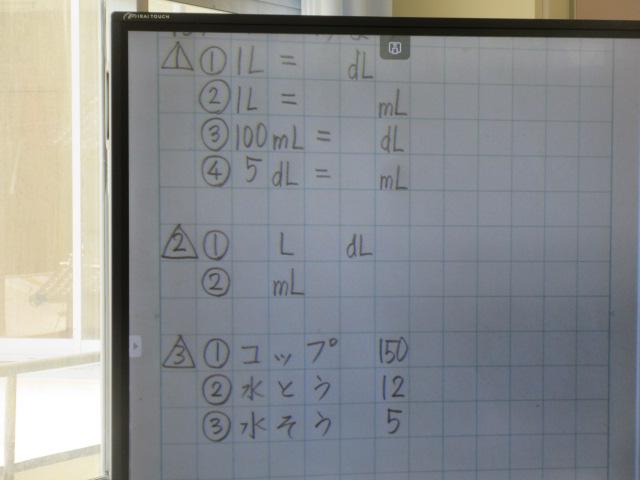 MIRAI TOUCH
1 ① 1L = dL
② 1L = mL
③ 100mL = dL
④ 5dL = mL
2 ① L dL
② mL
3 ① コップ 150
② 水とう 12
③ 水そう 5